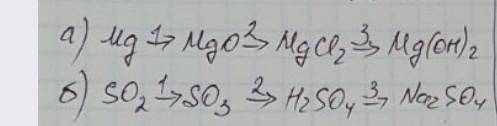 а) Mg 1→ MgO 2→ MgCl₂ 3→ Mg(OH)₂
б) SO₂ 1→ SO₃ 2→ H₂SO₄ 3→ Na₂SO₄